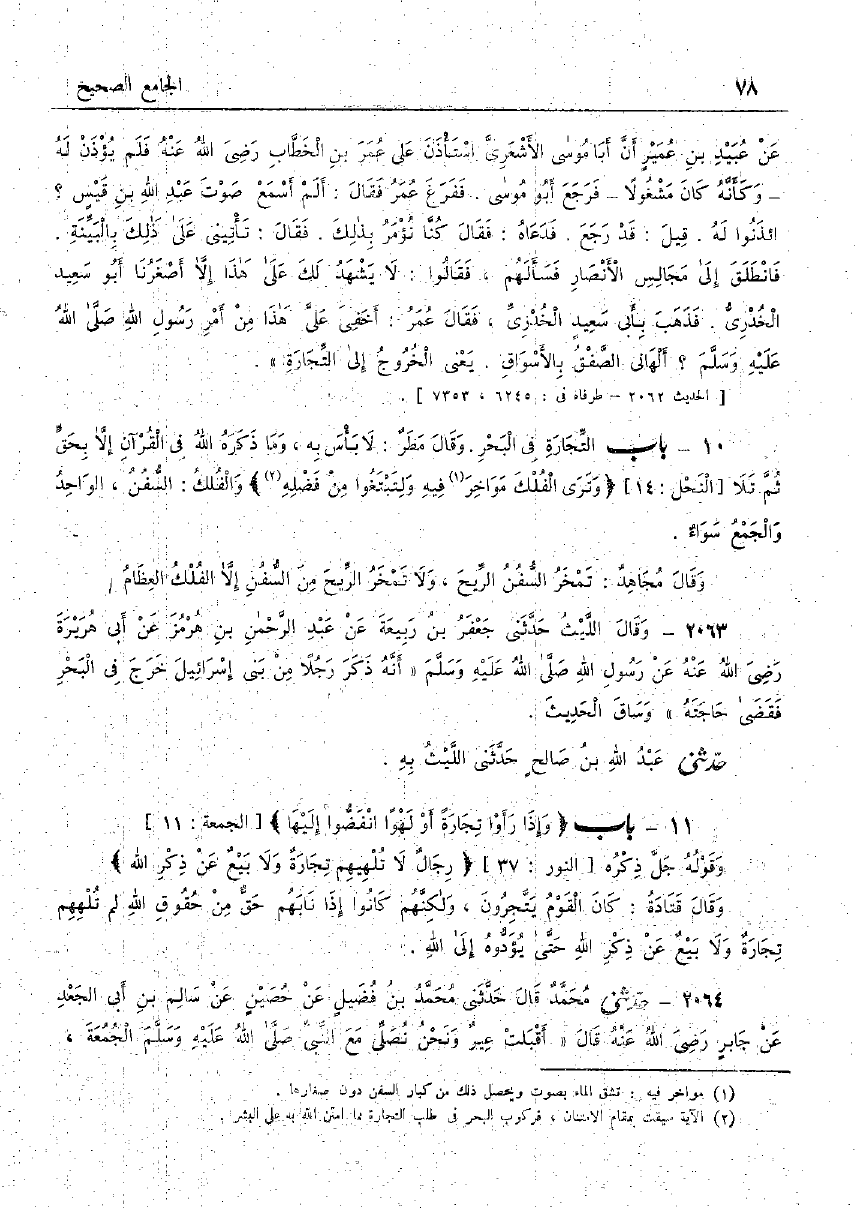 ٧٨ الجامع الصحيح
عَنْ عُبَيْدِ بنِ عُمَيْرٍ أَنَّ أَبَا مُوسَى الأَشْعَرِىَّ اسْتَأْذَنَ عَلَى عُمَرَ بنِ الْخَطَّابِ رَضِىَ اللهُ عَنْهُ فَلَم يُؤْذَنْ لَهُ
– وَكَأَنَّهُ كَانَ مَشْغُولًا – فَرَجَعَ أَبُو مُوسَى . فَفَرَغَ عُمَرُ فَقَالَ : أَلَمْ أَسْمَعْ صَوْتَ عَبْدِ اللهِ بنِ قَيْسٍ ؟
ائذَنُوا لَهُ . قِيلَ : قَدْ رَجَعَ . فَدَعَاهُ : فَقَالَ كُنَّا نُؤْمَرُ بِذٰلِكَ . فَقَالَ : تَأْتِينِى عَلَىٰ ذٰلِكَ بِالْبَيِّنَةِ .
فَانْطَلَقَ إِلَىٰ مَجَالِسِ الأَنْصَارِ فَسَأَلَهُم ، فَقَالُوا : لَا يَشْهَدُ لَكَ عَلَىٰ هَٰذَا إِلَّا أَصْغَرُنَا أَبُو سَعِيد
الْخُدْرِىُّ . فَذَهَبَ بِأَبِى سَعِيدٍ الْخُدْرِىِّ ، فَقَالَ عُمَرُ : أَخَفِىَ عَلَىَّ هَٰذَا مِنْ أَمْرِ رَسُولِ اللهِ صَلَّىٰ اللهُ
عَلَيْهِ وَسَلَّمَ ؟ أَلْهَانِى الصَّفْقُ بِالأَسْوَاقِ . يَعْنِى الْخُرُوجُ إِلَىٰ التِّجَارَةِ » .
[ الحديث ٢٠٦٢ – طرفاه فى : ٦٢٤٥ ، ٧٣٥٣ ] .
١٠ – باب التِّجَارَةِ فِى الْبَحْرِ. وَقَالَ مَطَرٌ : لَا بَأْسَ بِهِ ، وَمَا ذَكَرَهُ اللهُ فِى الْقُرْآنِ إِلَّا بِحَقٍّ
ثُمَّ تَلَا [النَّحْل : ١٤] ﴿ وَتَرَى الْفُلْكَ مَوَاخِرَ(١) فِيهِ وَلِتَبْتَغُوا مِنْ فَضْلِهِ(٢) ﴾ وَالْفُلْكُ : السُّفُنُ ، الوَاحِدُ
وَالْجَمْعُ سَوَاءٌ .
وَقَالَ مُجَاهِدٌ : تَمْخَرُ السُّفُنُ الرِّيحَ ، وَلَا تَمْخَرُ الرِّيحَ مِنَ السُّفُنِ إِلَّا الفُلْكُ العِظَامُ
٢٠٦٣ – وَقَالَ اللَّيْثُ حَدَّثَنِى جَعْفَرُ بنُ رَبِيعَةَ عَنْ عَبْدِ الرَّحْمٰنِ بنِ هُرْمُزَ عَنْ أَبِى هُرَيْرَةَ
رَضِىَ اللهُ عَنْهُ عَنْ رَسُولِ اللهِ صَلَّىٰ اللهُ عَلَيْهِ وَسَلَّمَ « أَنَّهُ ذَكَرَ رَجُلًا مِنْ بَنِى إِسْرَائِيلَ خَرَجَ فِى الْبَحْرِ
فَقَضَىٰ حَاجَتَهُ » وَسَاقَ الْحَدِيثَ .
حدّثنى عَبْدُ اللهِ بنُ صَالحٍ حَدَّثَنِى اللَّيْثُ بِهِ .
١١ – باب ﴿ وَإِذَا رَأَوْا تِجَارَةً أَوْ لَهْوًا انْفَضُّوا إِلَيْهَا ﴾ [ الجمعة : ١١ ]
وَقَوْلُهُ جَلَّ ذِكْرُه [ النور : ٣٧ ] ﴿ رِجَالٌ لَا تُلْهِيهِم تِجَارَةٌ وَلَا بَيْعٌ عَنْ ذِكْرِ الله ﴾
وَقَالَ قَتَادَةُ : كَانَ الْقَوْمُ يَتَّجِرُونَ ، وَلٰكِنَّهُم كَانُوا إِذَا نَابَهُم حَقٌّ مِنْ حُقُوقِ اللهِ لم تُلْهِهِم
تِجَارَةٌ وَلَا بَيْعٌ عَنْ ذِكْرِ اللهِ حَتَّىٰ يُؤَدُّوهُ إِلَىٰ اللهِ .
٢٠٦٤ – حدّثنى مُحَمَّدٌ قَالَ حَدَّثَنِى مُحَمَّدُ بنُ فُضَيلٍ عَنْ حُصَيْنٍ عَنْ سَالِمِ بنِ أَبِى الجَعْدِ
عَنْ جَابِرٍ رَضِىَ اللهُ عَنْهُ قَالَ « أَقْبَلَتْ عِيرٌ وَنَحْنُ نُصَلِّى مَعَ النَّبِىِّ صَلَّىٰ اللهُ عَلَيْهِ وَسَلَّمَ الْجُمُعَةَ ،
(١) مواخر فيه : تشق الماء بصوت ويحصل ذلك من كبار السفن دون صغارها .
(٢) الآية سيقت بمقام الامتنان ، فركوب البحر فى طلب التجارة مما امتن الله به على البشر .